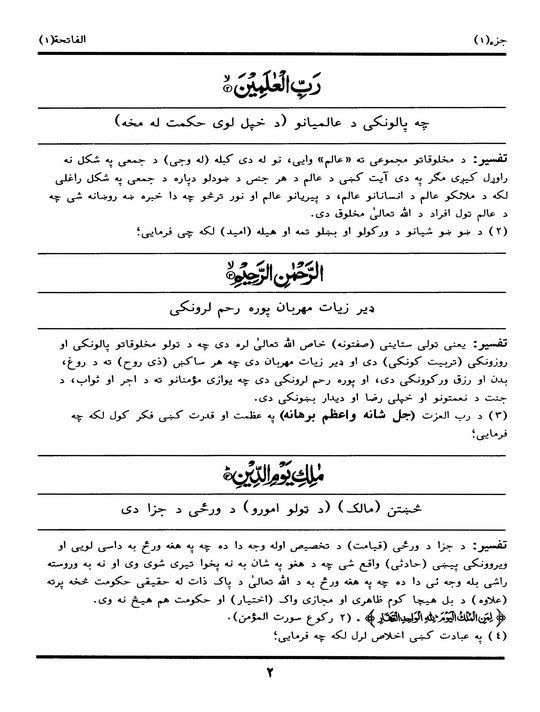 جزء(١) الفاتحة(١)
رَبِّ الْعٰلَمِيْنَ ۙ﴿٢﴾
چه پالونکی د عالمیانو (د خپل لوی حکمت له مخه)
تفسیر: د مخلوقاتو مجموعی ته «عالم» وایی، نو له دی کبله (له وجی) د جمعی په شکل نه
راوړل کیږی مګر په دی آیت کښی د عالم د هر جنس د ښودلو دپاره د جمعی په شکل راغلی
لکه د ملائکو عالم د انسانانو عالم، د پیریانو عالم او نور ترڅو چه دا خبره ښه روښانه شی چه
د عالم ټول افراد د الله تعالیٰ مخلوق دی.
(٢) د ښو ښو شیانو د ورکولو او بښلو تمه او هیله (امید) لکه چی فرمایی؛
الرَّحْمٰنِ الرَّحِيْمِ ۙ﴿٣﴾
ډیر زیات مهربان پوره رحم لرونکی
تفسیر: یعنی ټولی ستاینی (صفتونه) خاص الله تعالیٰ لره دی چه د ټولو مخلوقاتو پالونکی او
روزونکی (تربیت کونکی) دی او ډیر زیات مهربان دی چه هر ساکښ (ذی روح) ته د روغ،
بدن او رزق ورکوونکی دی، او پوره رحم لرونکی دی چه یوازی مؤمنانو ته د اجر او ثواب، د
جنت د نعمتونو او خپلی رضا او دیدار بښونکی دی.
(٣) د رب العزت (جل شانه واعظم برهانه) په عظمت او قدرت کښی فکر کول لکه چه
فرمایی؛
مٰلِكِ يَوْمِ الدِّيْنِ ﴿٤﴾
څښتن (مالک) (د ټولو امورو) د ورځی د جزا دی
تفسیر: د جزا د ورځی (قیامت) د تخصیص اوله وجه دا ده چه په هغه ورځ به داسی لویی او
ویروونکی پیښی (حادثی) واقع شی چه د هغو په شان به نه پخوا تیری شوی وی او نه به وروسته
راشی بله وجه ئی دا ده چه په هغه ورځ به د الله تعالیٰ د پاک ذات له حقیقی حکومت څخه پرته
(علاوه) د بل هیچا کوم ظاهری او مجازی واک (اختیار) او حکومت هم هیڅ نه وی.
﴿ لِمَنِ الْمُلْكُ الْيَوْمَ لِلّٰهِ الْوَاحِدِ الْقَهَّارِ ﴾ . (٢ رکوع سورت المؤمن).
(٤) په عبادت کښی اخلاص لرل لکه چه فرمایی؛
٢